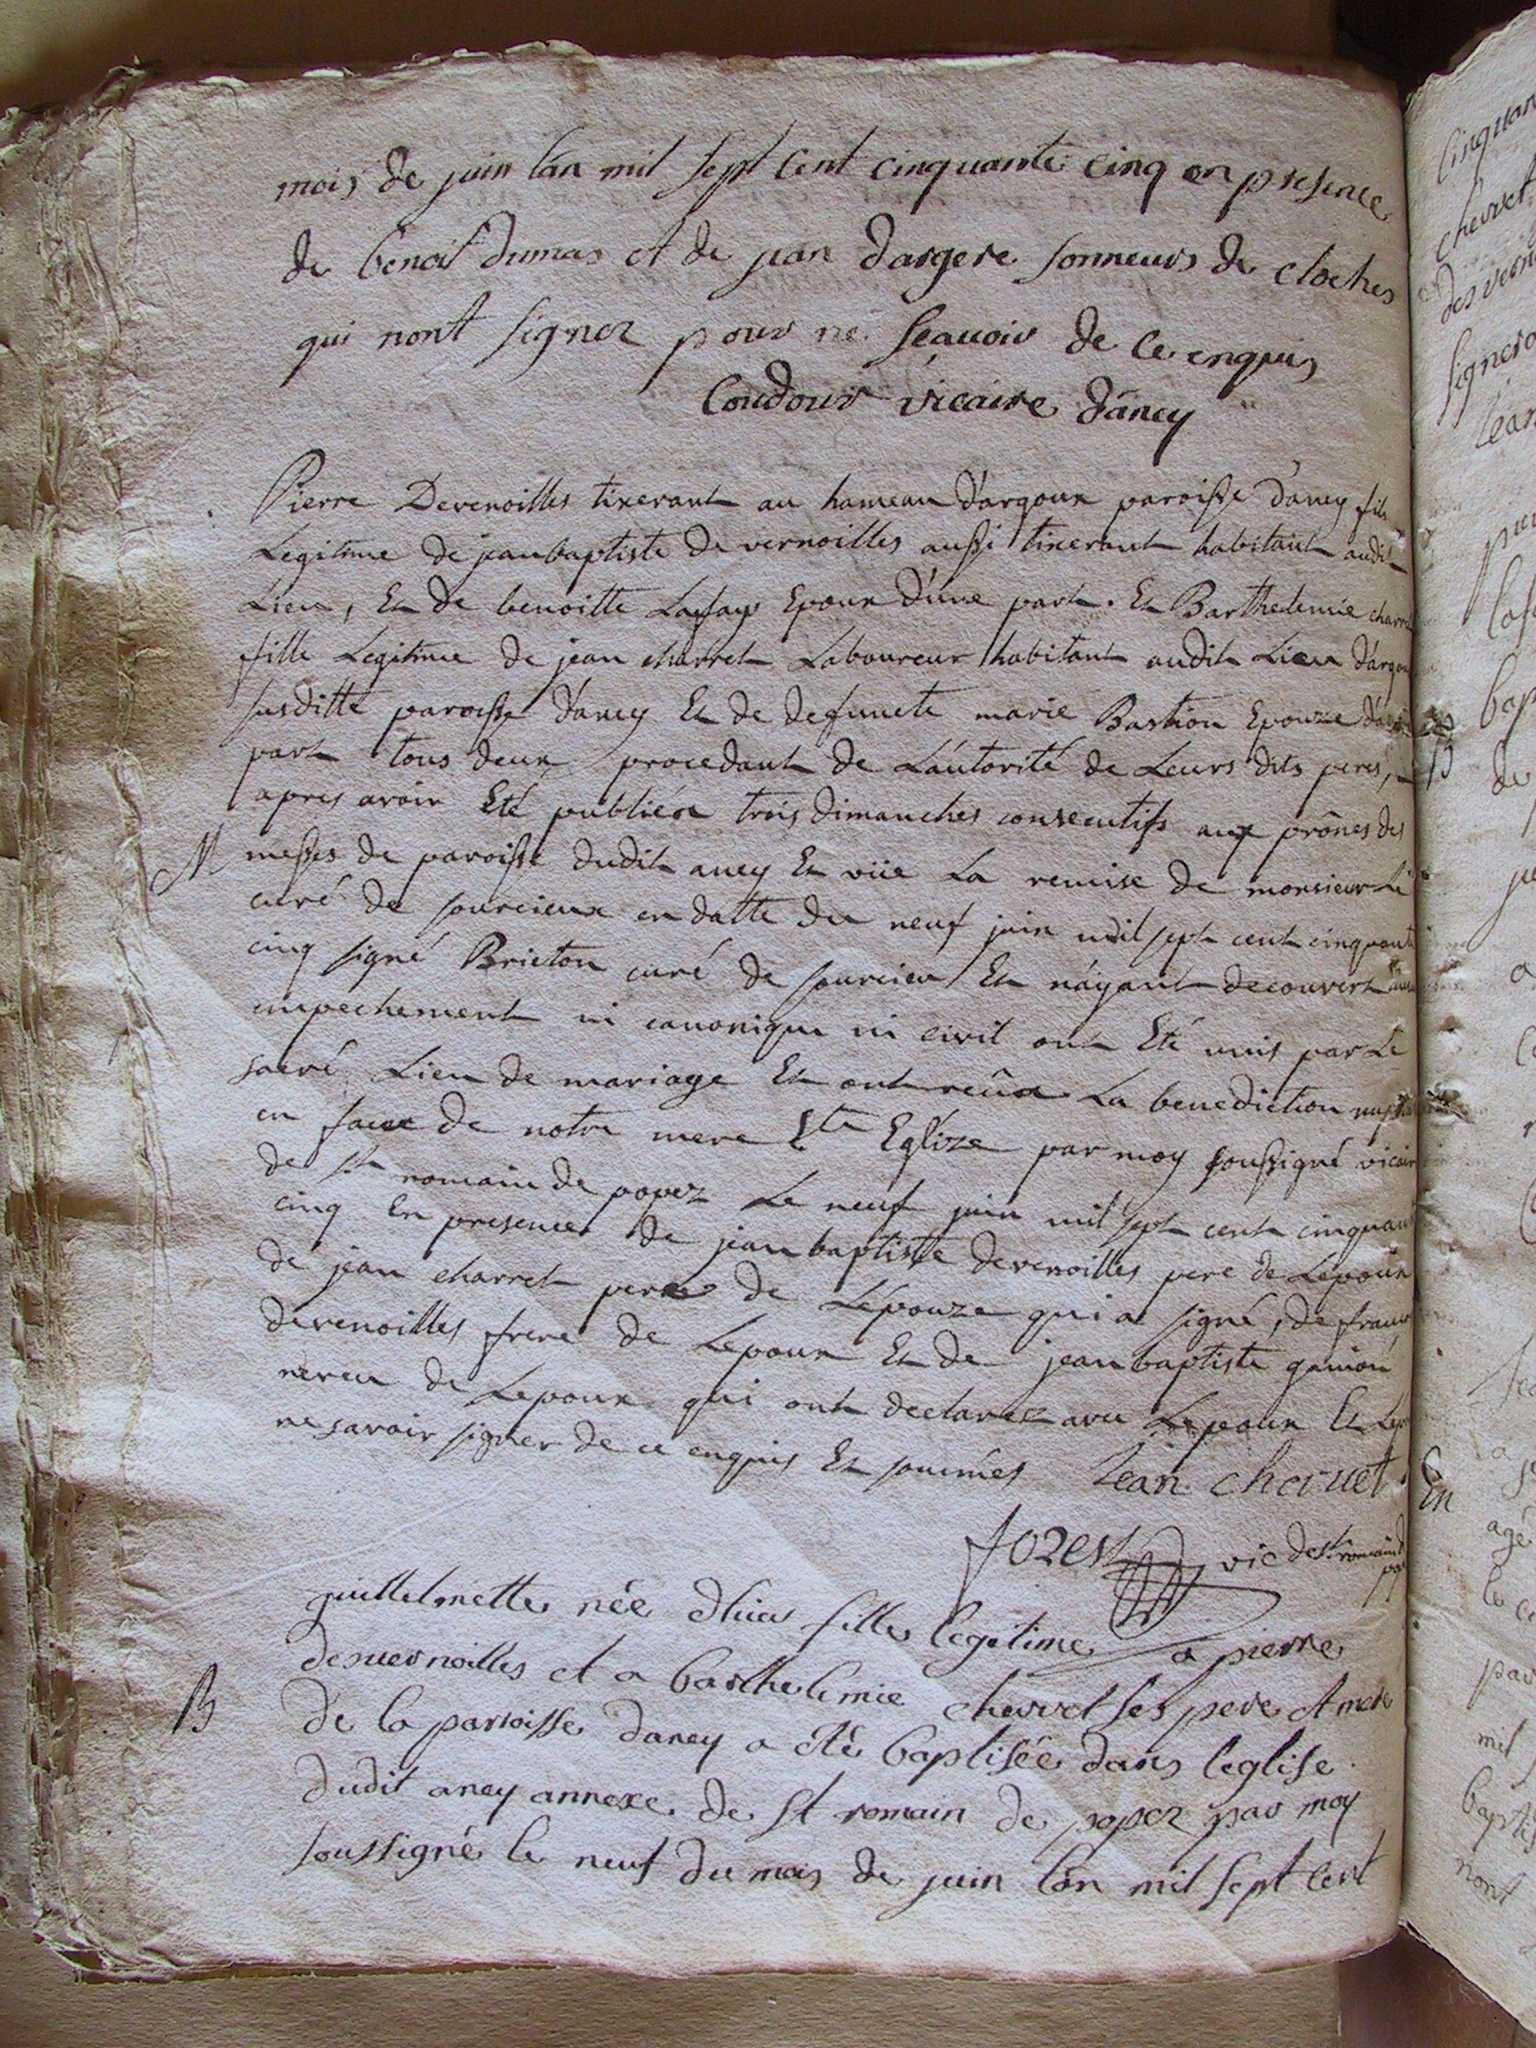 mois de juin lan mil sept cent cinquante cinq en presence
de benoit dumas et de jean dargere sonneurs de cloches
qui nont signez pour ne sçauoir de ce enquis
Coudour vicaire d'ancy
Pierre Devenoilles tixerant au hameau d'argoux paroisse d'ancy fils
Legitime de jean baptiste de vernoilles aussi tixerant habitant audit
Lieu, Et de benoitte Lafay Epoux d'une part. Et Barthelemie charret
fille Legitime de jean charret Laboureur habitant audit Lieu d'argoux
susditte paroisse d'ancy Et de defuncte marie Bastion Epouze d'autre
part tous deux procedant de L'autorité de Leurs dits peres,
apres avoir Eté publiéz trois dimanches consecutifs aux prônes des
M
messes de paroisse dudit ancy Et vüe La remise de monsieur Le
curé de sourcieux en datte du neuf juin mil sept cent cinquante
cinq signé Brieton curé de sourcieu Et n'ayant decouvert
empechement ni canonique ni civil ont Eté unis par Le
sacré Lien de mariage Et ont reçûs La benediction
en face de notre mere Ste Eglize par moy soussigné vicaire
de st romain de popez Le neuf juin mil sept cent cinquante
cinq En presence de jean baptiste devenoilles pere de Lepoux
de jean charret pere de Lépouze qui a signé, de
devenoilles frere de Lepoux Et de jean baptiste
neveu de Lepoux qui ont declarez avec Lepoux Et
ne savoir signer de ce enquis Et sommés Jean chervet
forest vic de st romain
guillelmette née d'hier fille legitime a pierre
deuernoilles et a barthelemie chervet ses pere et mere
B
de la paroisse dancy a été baptisée dans leglise
dudit ancy annexe de st romain de popez par moy
soussigné le neuf du mois de juin l'an mil sept cent
Cinquan
chervet
signero
jean
En